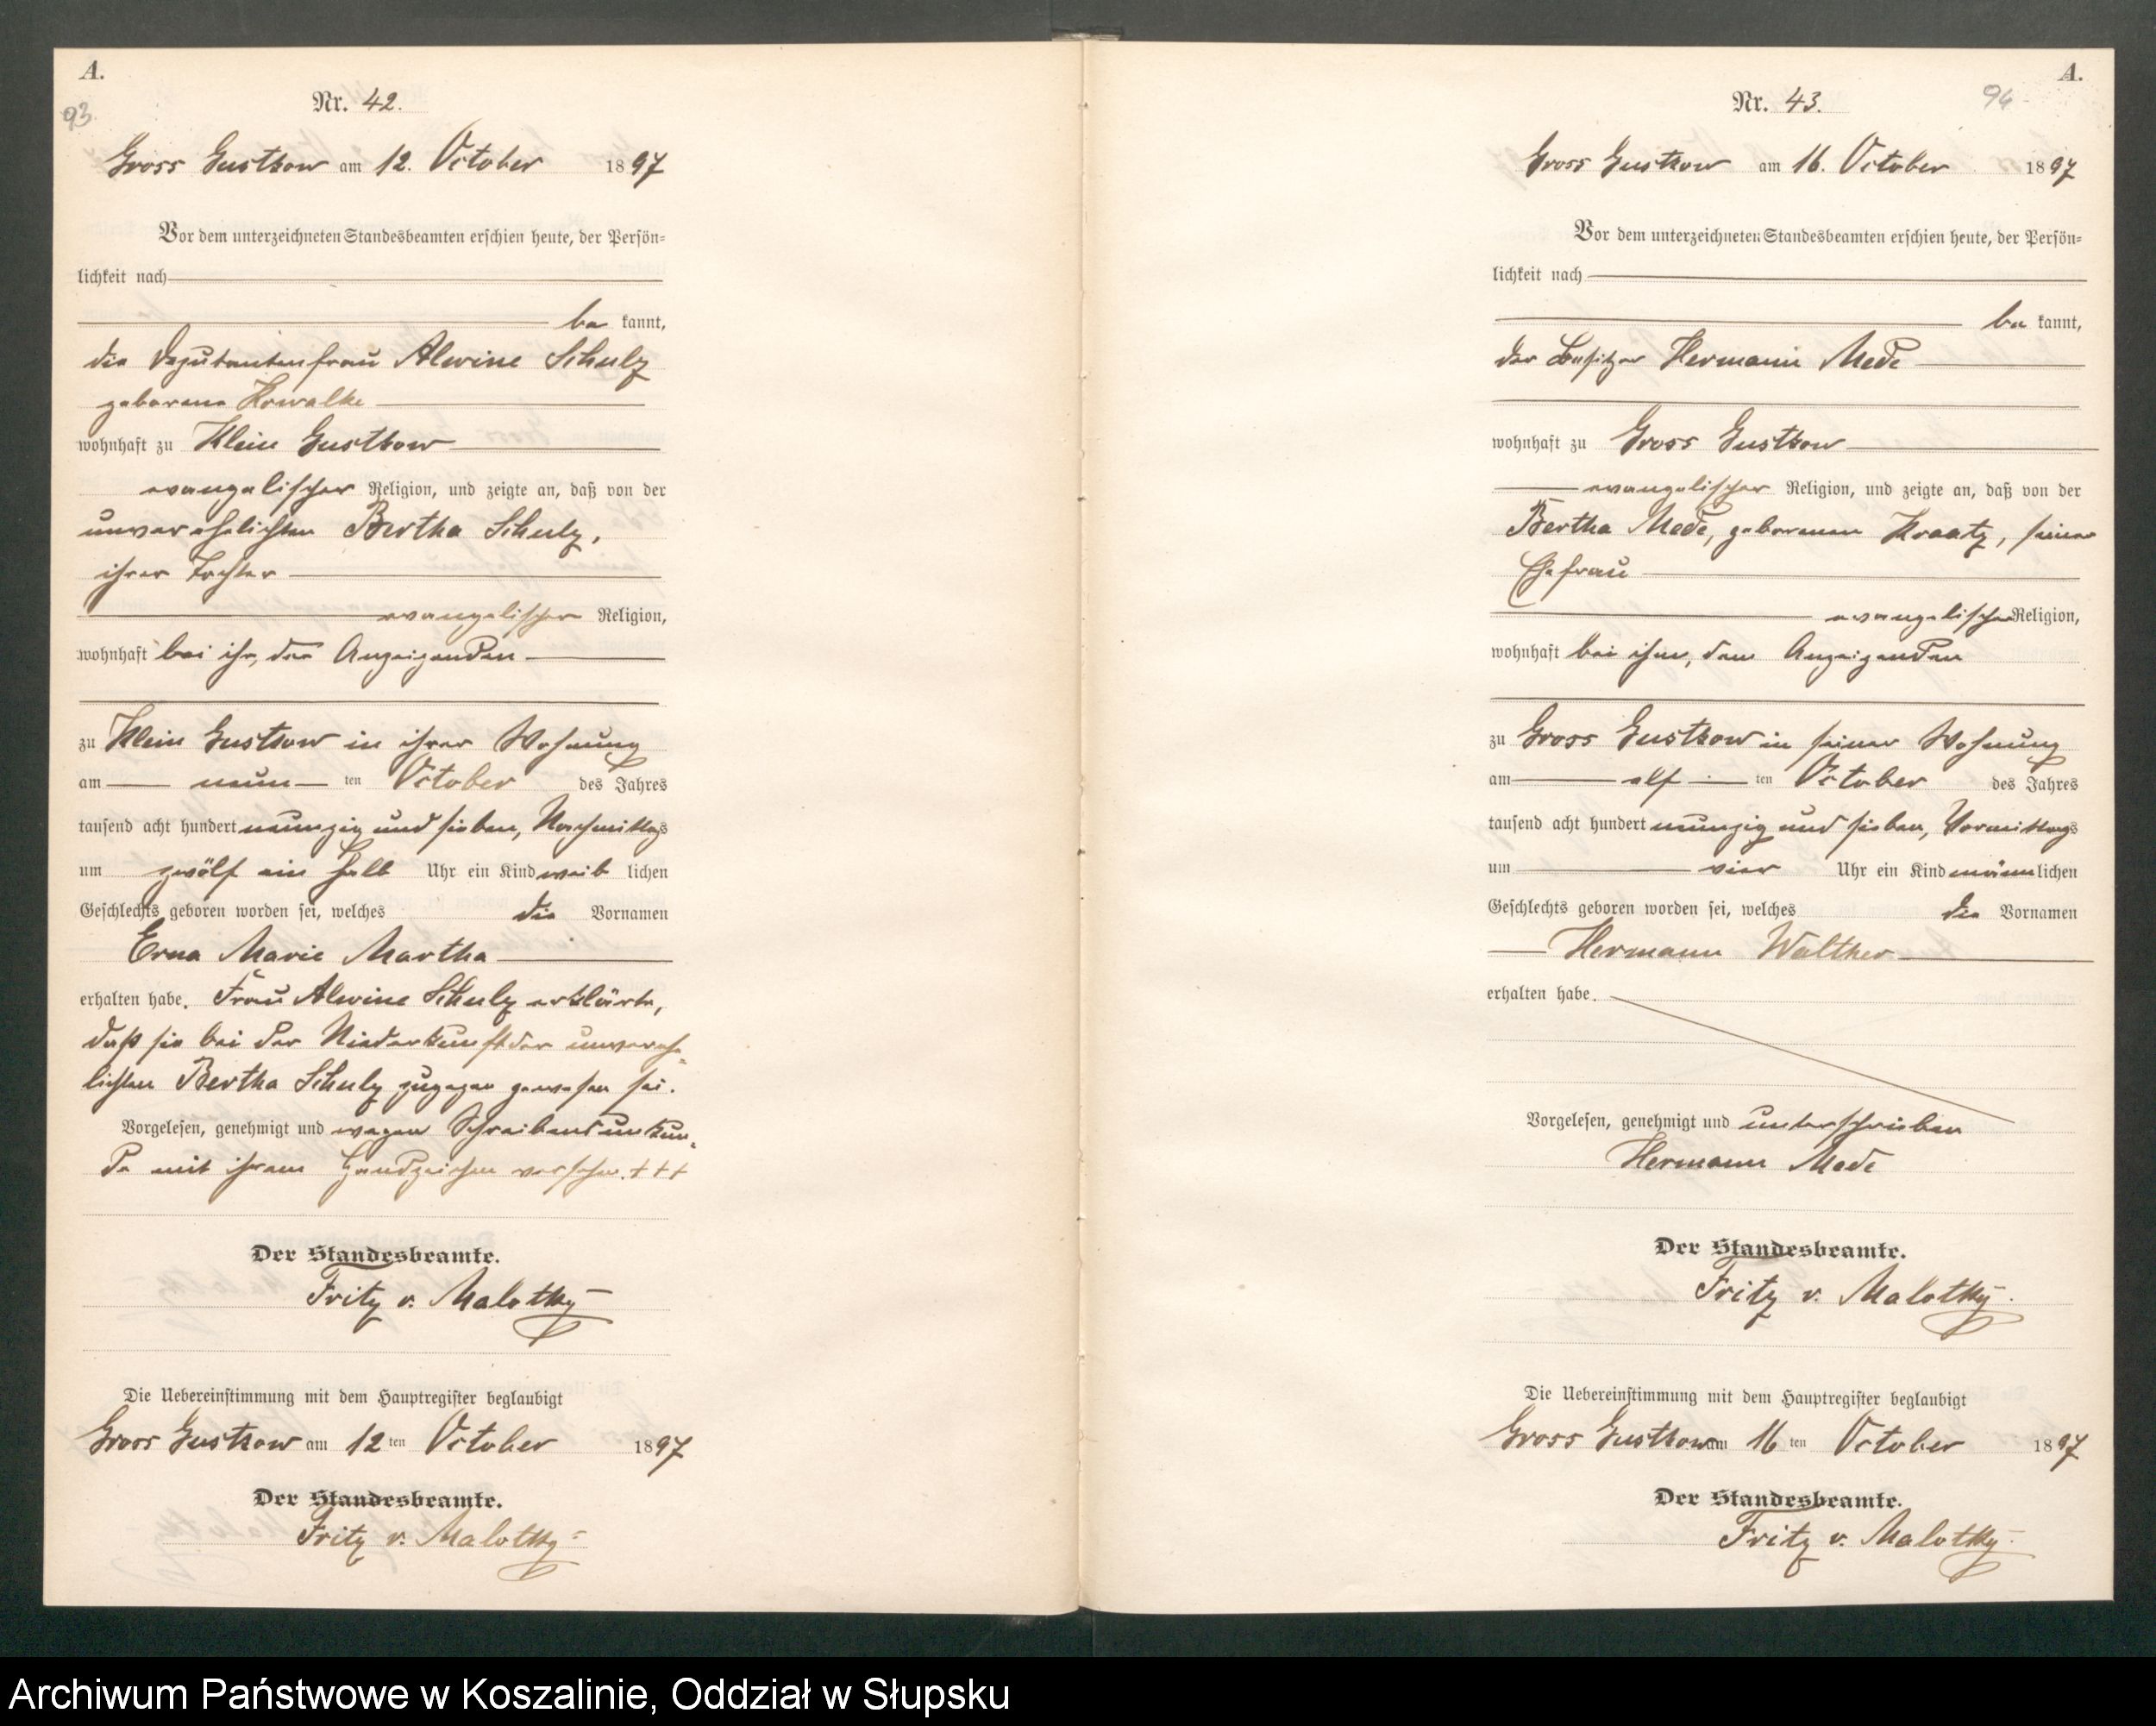 A.
93
Nr. 42.
Gross Gustkow am 12. October 1897
Vor dem unterzeichneten Standesbeamten erschien heute, der Persön-
lichkeit nach
be kannt,
die Deputantenfrau Alwine Schulz
geborene Kowalke
wohnhaft zu Klein Gustkow
evangelischer Religion, und zeigte an, daß von der
unverehelichten Bertha Schulz,
ihrer Tochter
evangelischer Religion,
wohnhaft bei ihr, der Anzeigenden
zu Klein Gustkow in ihrer Wohnung
am neun ten October des Jahres
tausend acht hundert neunzig und sieben, Nachmittags
um zwölf ein halb Uhr ein Kind weib lichen
Geschlechts geboren worden sei, welches die Vornamen
Erna Marie Martha
erhalten habe. Frau Alwine Schulz erklärte,
daß sie bei der Niederkunft der unverehe-
lichten Bertha Schulz zugegen gewesen sei.
Vorgelesen, genehmigt und wegen Schreibensunkun-
de mit ihrem Handzeichen versehen. +++
Der Standesbeamte.
Fritz v. Malottky
Die Uebereinstimmung mit dem Hauptregister beglaubigt
Gross Gustkow am 12 ten October 1897
Der Standesbeamte.
Fritz v. Malottky
A.
94
Nr. 43.
Gross Gustkow am 16. October 1897
Vor dem unterzeichneten Standesbeamten erschien heute, der Persön-
lichkeit nach
be kannt,
der Besitzer Hermann Mede
wohnhaft zu Gross Gustkow
evangelischer Religion, und zeigte an, daß von der
Bertha Mede, geborenen Kraatz, seiner
Ehefrau
evangelischer Religion,
wohnhaft bei ihm, dem Anzeigenden
zu Gross Gustkow in seiner Wohnung
am elf ten October des Jahres
tausend acht hundert neunzig und sieben, Vormittags
um vier Uhr ein Kind männ lichen
Geschlechts geboren worden sei, welches die Vornamen
Hermann Walther
erhalten habe.
Vorgelesen, genehmigt und unterschrieben
Hermann Mede
Der Standesbeamte.
Fritz v. Malottky.
Die Uebereinstimmung mit dem Hauptregister beglaubigt
Gross Gustkow am 16 ten October 1897
Der Standesbeamte.
Fritz v. Malottky.
Archiwum Państwowe w Koszalinie, Oddział w Słupsku